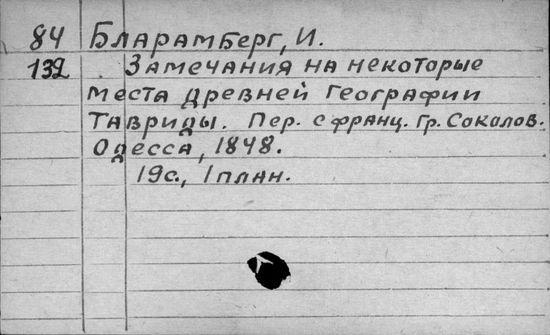 84 Бларамберг, И.
132 Замечания на некоторые
места древней географии
Тавриды. Пер. с франц. Гр. Соколов.
Одесса, 1848.
19с., 1 план.